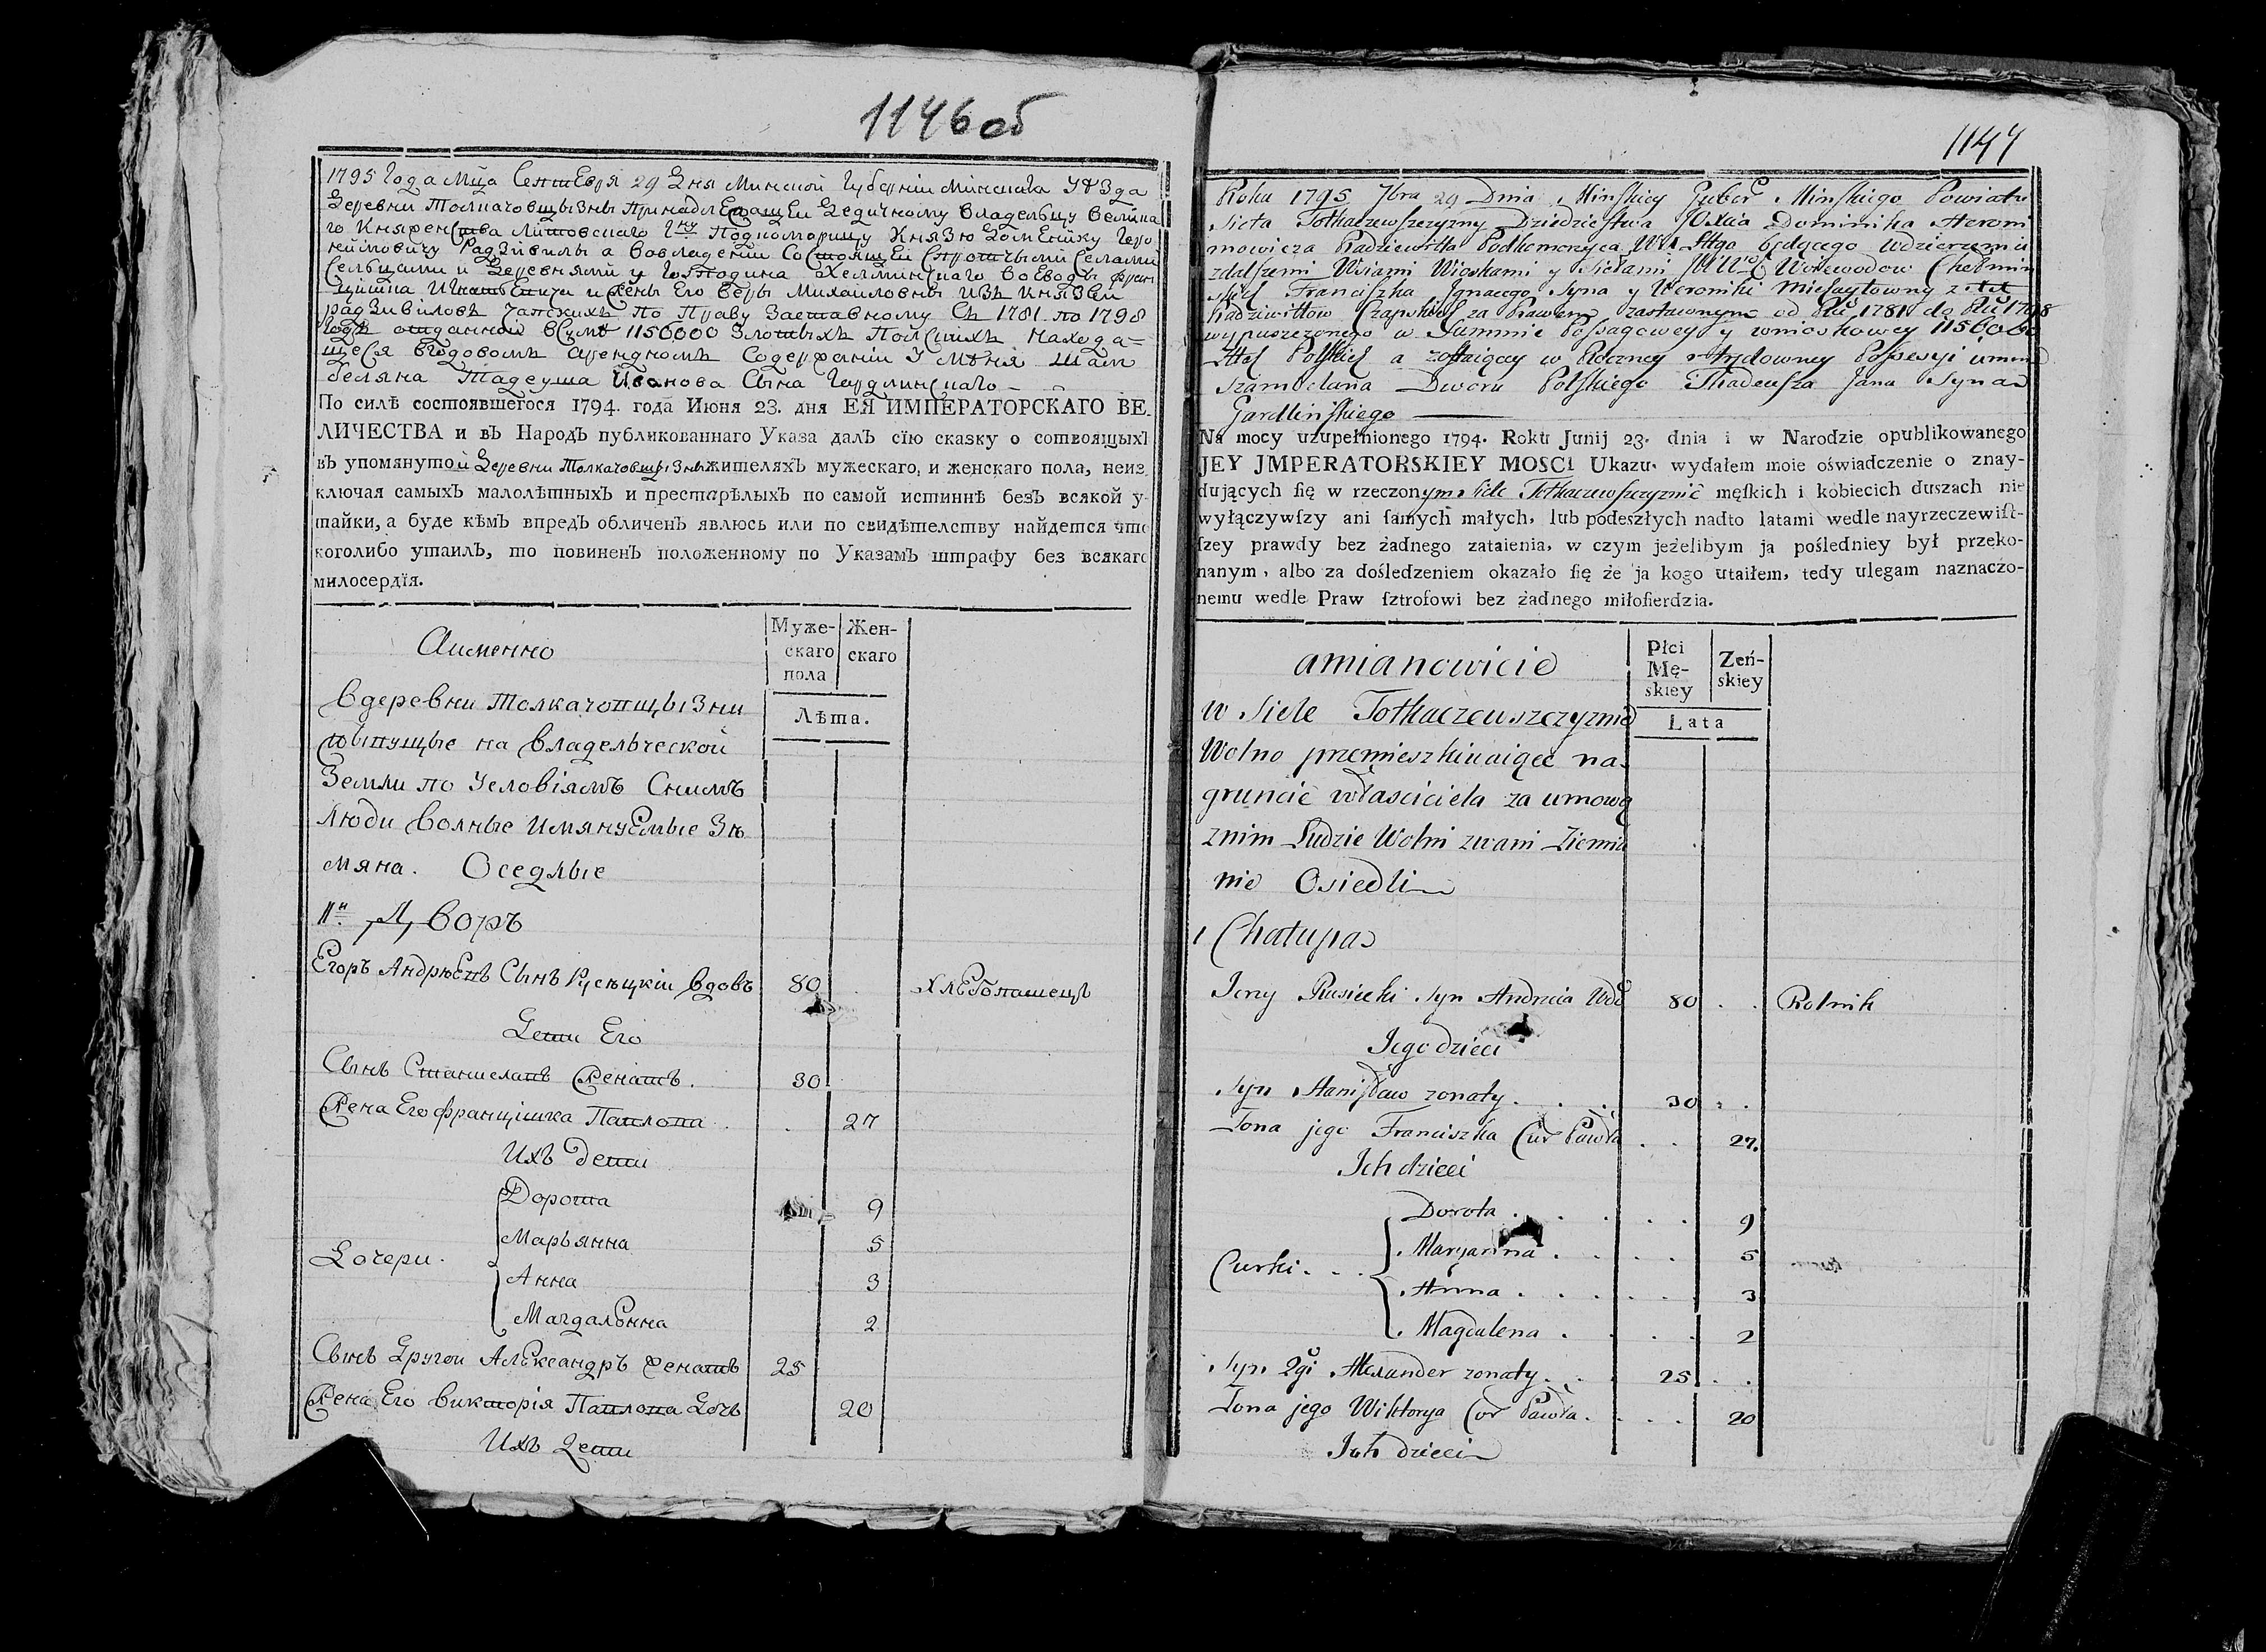 1146 об
1795 Года Мца Сентебря 29 Дня Минской Губернии Минскага Уѣзда
Деревни Толкачовщызны Принадлежащей Дедичному Владельцу Велика
го Княженства Литовского Гну Подкоморицу Князю Доменику Геро
неимовичу Радзивилы а Вовладении Состоящей Спротчыми Селами
Сельцами и Деревнями у Господина Хелминскаго Воеводы Фран
цишка Игнатьевича и Жены Его Веры Михаиловны Изъ Князей
Радзивиловъ Чапскихъ По Праву Заставному Съ 1781 по 1798
Годъ отданной Всумѣ 1156000 Злотыхъ Польскихъ Находа-
щеся Вгодовомъ Арендномъ Содержании У Меня Шам
беляна Тадеуша Иванова Сына Гардлинскаго
По силѣ состоявшегося 1794. года Июня 23. дня ЕЯ ИМПЕРАТОРСКАГО ВЕ-
ЛИЧЕСТВА и въ Народъ публикованнаго Указа далъ сїю сказку о сотвоящыхъ
въ упомянутой Деревни Толкачовщызны жителяхъ мужескаго, и женскаго пола, неиз
ключая самыхъ малолѣтныхъ и престарѣлыхъ по самой истиннѣ безъ всякой у-
тайки, а буде кѣмъ впредъ обличенъ явлюсь или по свидѣтелству найдется что
коголибо утаилъ, то повиненъ положенному по Указамъ штрафу без всякаго
милосердїя.
Аименно
Муже-
скаго
пола
Жен-
скаго
Лѣта.
Вдеревни Толкачовщызни
Живущые на Владельческой
Земли по Условіямъ Снимъ
Люди Волные Имянуемые Зе
мяна. Оседлые
1й Дворъ
Егоръ Андрѣевъ Сынъ Русѣцкіи Вдовъ 80 Хлебопашецъ
Дети Его
Сынъ Станиславъ Женатъ. 30
Жена Его Францішка Павлова 27
Ихъ Дети
Дочери.
Дорота 9
Марьянна 5
Анна 3
Магдаленна 2
Сынъ Другои Александръ Женатъ 25
Жена Его Викторія Павлова Дочь 20
Ихъ Дети
1147
Roku 1795 7bra 29 Dnia Minskiey Guber Minskiego Powiatu
Sieła Tołkaczewszczyzny Dziedzictwa JOXcia Dominika Heroni
mowicza Radziewiłła Podkomorzyca WXLittgo będącego wdzierżeniu
zdalszemi Wsiami Wioskami y Siełami Wojewodow Chełmin
skich Franciszka Ignacego Syna y Weroniki Michayłowny z
Radziwiłłow Czapskich za Prawem zastawnym od Rku 1781 do Rku 1798
wypuszczonego w Summie Possagowey y wnioskowey 1156000
Złłch Polskich a zostaiącey w Roczney Arędowney Possesyi u mnie
Szambelana Dworu Polskiego Thadeusza Jana Syna
Gardlińskiego
Na mocy uzupełnionego 1794. Roku Junij 23. dnia i w Narodzie opublikowanego
JEY JMPERATORSKIEY MOSCI Ukazu. wydałem moie oświadczenie o znay-
dujących ſię w rzeczonym Siele Tołkaczewszczyznie męſkich i kobiecich duszach nie
wyłączywſzy ani ſamych małych, lub podeszłych nadto latami wedle nayrzeczewiſt-
ſzey prawdy bez żadnego zataienia, w czym jeżelibym ja pośledniey był przeko-
nanym, albo za dośledzeniem okazało ſię że ja kogo utaiłem, tedy ulegam naznaczo-
nemu wedle Praw ſztrofowi bez żadnego miłoſierdzia.
amianowicie
Płci
Mę-
skiey
Zeń-
skiey
Lata
w Siele Tołkaczewszczyznie
Wolno przemieszkiwaiące na
gruncie własciciela za umową
znim Ludzie Wolni zwani Ziemia
nie Osiedli
1 Chałupa
Jerzy Rusiecki Syn Andrzeia Wdo 80 Rolnik
Jego dzieci
Syn Stanisław zonaty 30
Zona jego Franciszka Cur Pawła 27.
Ich dzieci
Curki
Dorota 9
Maryanna 5
Anna 3
Magdalena 2
Syn 2gi Alexander zonaty 25
Zona jego Wiktorya Cor Pawła 20
Ich dzieci